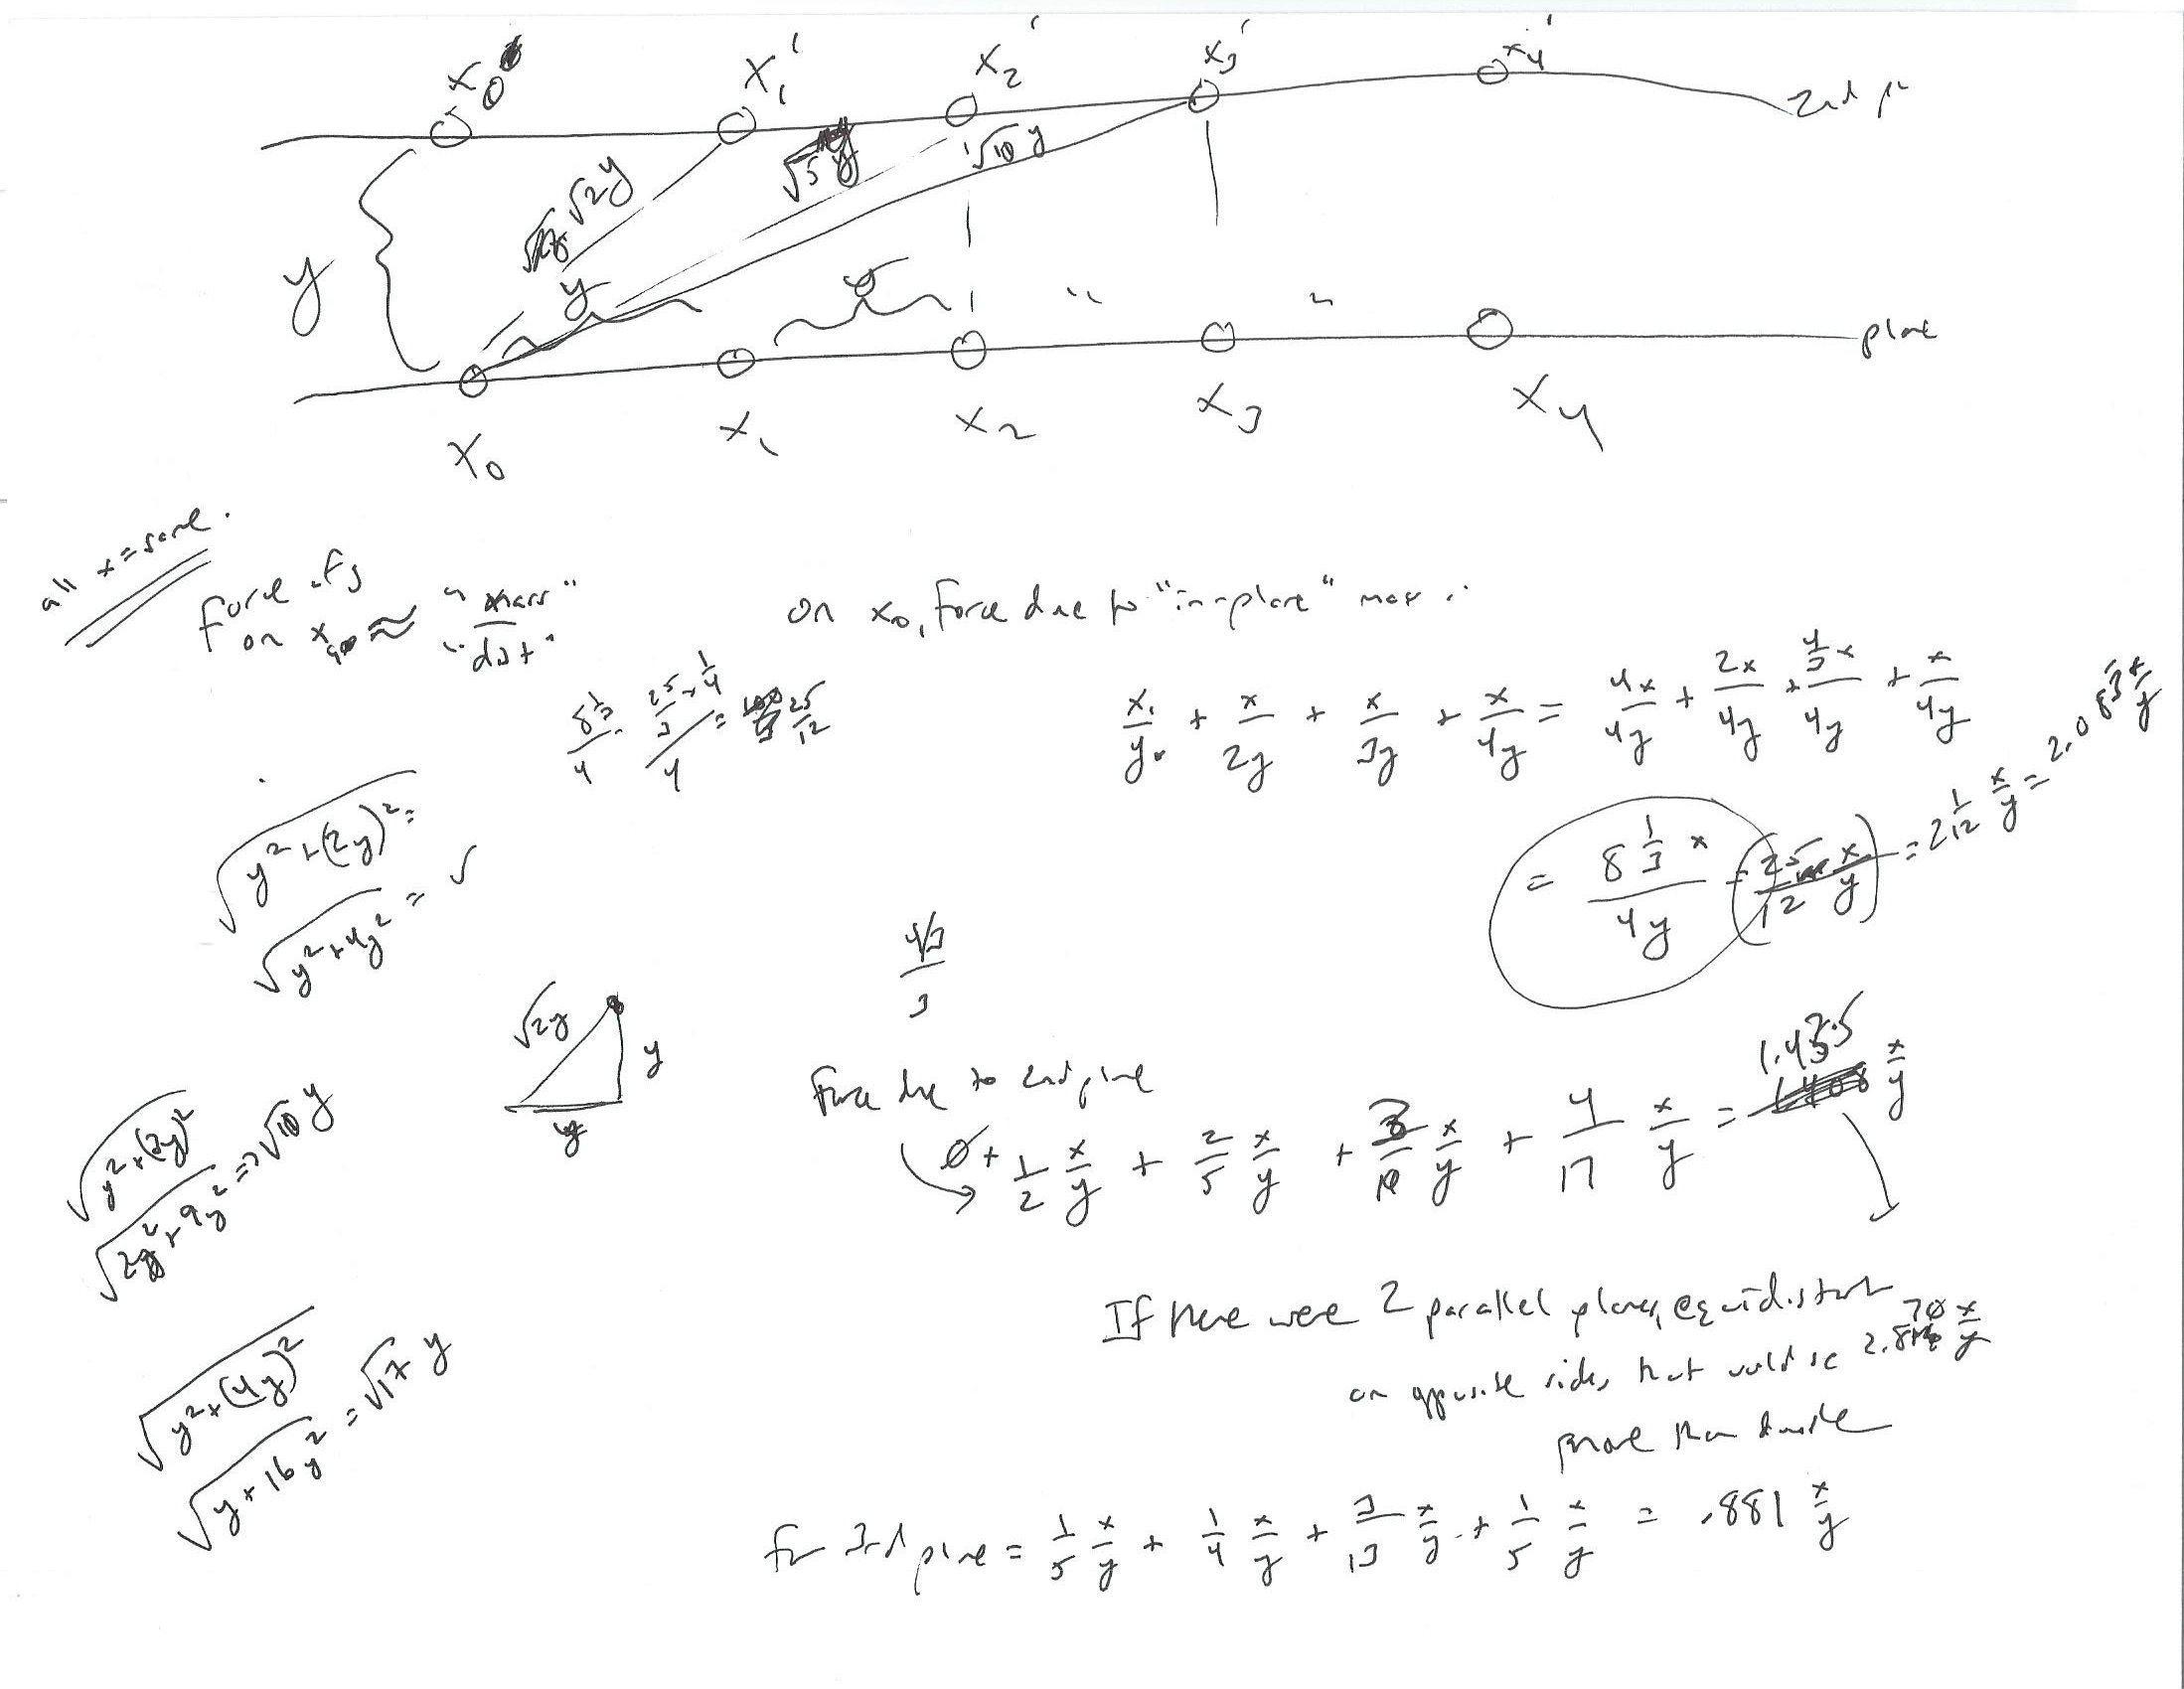 x₀
x₁'
x₂'
x₃'
x₄'
2nd pl
√2y
√5y
√10 y
y
y
y
"
"
plane
x₀
x₁
x₂
x₃
x₄
all x = same.
Force
on x₀ ≈ "mass" / "dist"
on x₀, force due to "in-plane" mass
8 1/3 / 4
25/3 × 1/4 / 4 = 25/12
x₁/y + x/2y + x/3y + x/4y = 4x/4y + 2x/4y + 4/3 x/4y + x/4y
= 8 1/3 x / 4y = (25/12 x/y) = 2 1/12 x/y = 2.083 x/y
√(y² + (2y)²) =
√(y² + 4y²) = √
4/3 / 3
√2y
y
y
Force due to 2nd plane
0 + 1/2 x/y + 2/5 x/y + 3/10 x/y + 4/17 x/y = 1.435 x/y
√(y² + (3y)²)
√(y² + 9y²) = √10 y
If there were 2 parallel planes, equidistant
on opposite sides, that would be 2.870 x/y
more than double
√(y² + (4y)²)
√(y + 16y²) = √17 y
for 3rd plane = 1/5 x/y + 1/4 x/y + 3/13 x/y + 1/5 x/y = .881 x/y